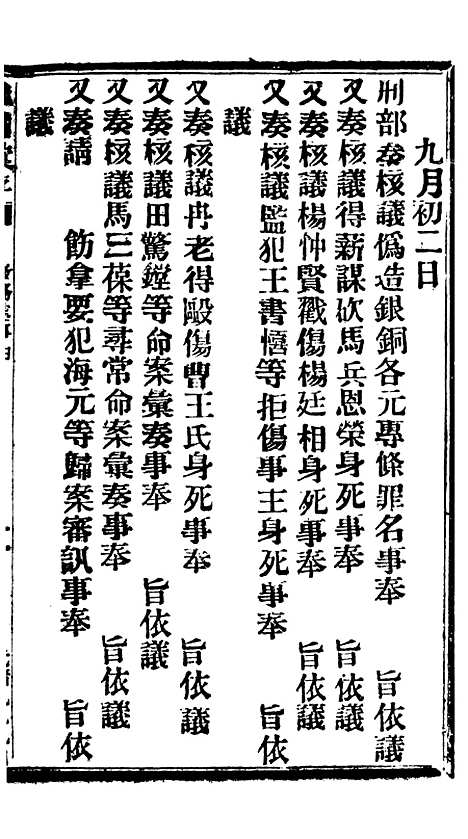 九月初二日
刑部奏核議僞造銀銅各元專條罪名事奉　旨依議
又奏核議得薪謀砍馬兵恩榮身死事奉　旨依議
又奏核議楊仲賢戳傷楊廷相身死事奉　旨依議
又奏核議監犯王書憘等拒傷事主身死事奉　旨依
議
又奏核議冉老得毆傷曹王氏身死事奉　旨依議
又奏核議田驚鏜等命案彙奏事奉　旨依議
又奏核議馬三葆等尋常命案彙奏事奉　旨依議
又奏請　飭拿要犯海元等歸案審訊事奉　旨依
議